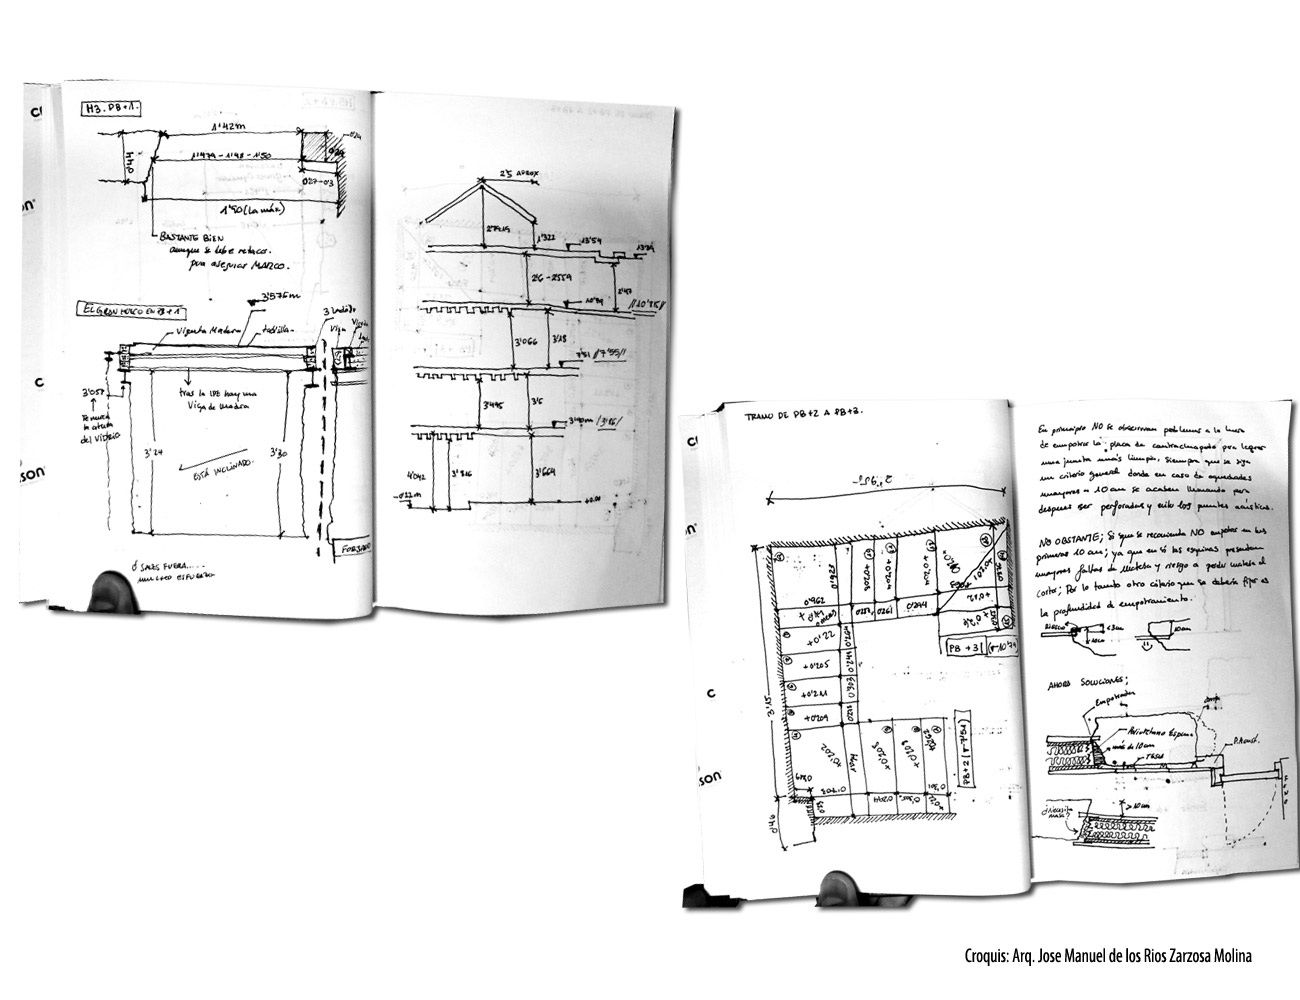 H3. PB+1.
1'42m
0'24
0'44
1'479-1'48-1'50
0'24
0'27-0'3
1'90 (La máx)
BASTANTE BIEN
aunque se debe retacar
para asegurar MARCO.
EL GRAN HUECO EN PB+1
3'575m
Vigueta Madera
ladrillo
3 Ladrillo
Viga
3'057
Tenerse
la altura
del vidrio
tras la IPE hay una
Viga de madera
3'24
3'30
ESTÁ INCLINADO.
FORJADO
ó SALES FUERA.....
2'5 APROX
2'7419
1'322
13'54
2'6 - 2'559
2'47
10'74
//10'715//
3'066
3'18
7'51 //7'55//
3'495
3'5
3'90m /3'86/
4'042
3'816
3'664
-0'22m
±0.00
TRAMO DE PB+2 A PB+3.
2'95
3'15
0'46
0'962
+0'22
+0'205
+0'211
+0'209
+0'202
+0'203
+0'204
0'261
0'244
0'264
0'244
0'303
+0'203
+0'203
0'703
0'204
PB+3 (+10'74)
PB+2 (+7'51)
En principio NO se observan problemas a la hora
de empotrar la placa de contrachapado para lograr
una junta más limpia, siempre que se siga
un criterio general donde en caso de oquedades
mayores a 10 cm se acaben llenando para
despues ser perforadas y evite los puentes acústicos.
NO OBSTANTE; Si que se recomienda NO empotrar en los
primeros 10 cm; ya que en sí las esquinas presentan
mayores faltas de materia y riesgo a perder materia al
cortar; Por lo tanto otro criterio que se debería fijar es
la profundidad de empotramiento.
RIESGO
<3cm
10cm
10cm
AHORA SOLUCIONES;
Empotrador
Poliuretano Espuma
más de 10cm
P. Acust.
¿Necesita
masa?
>10cm
Croquis: Arq. Jose Manuel de los Rios Zarzosa Molina